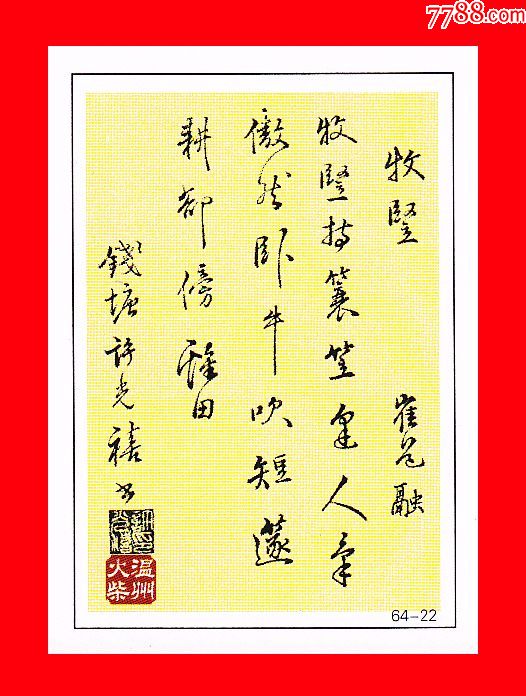 7788.com
牧豎 崔道融
牧豎持蓑笠逢人氣
傲然臥牛吹短篴
耕卻傍谿田
錢塘許光禧書
温州
火柴
64-22